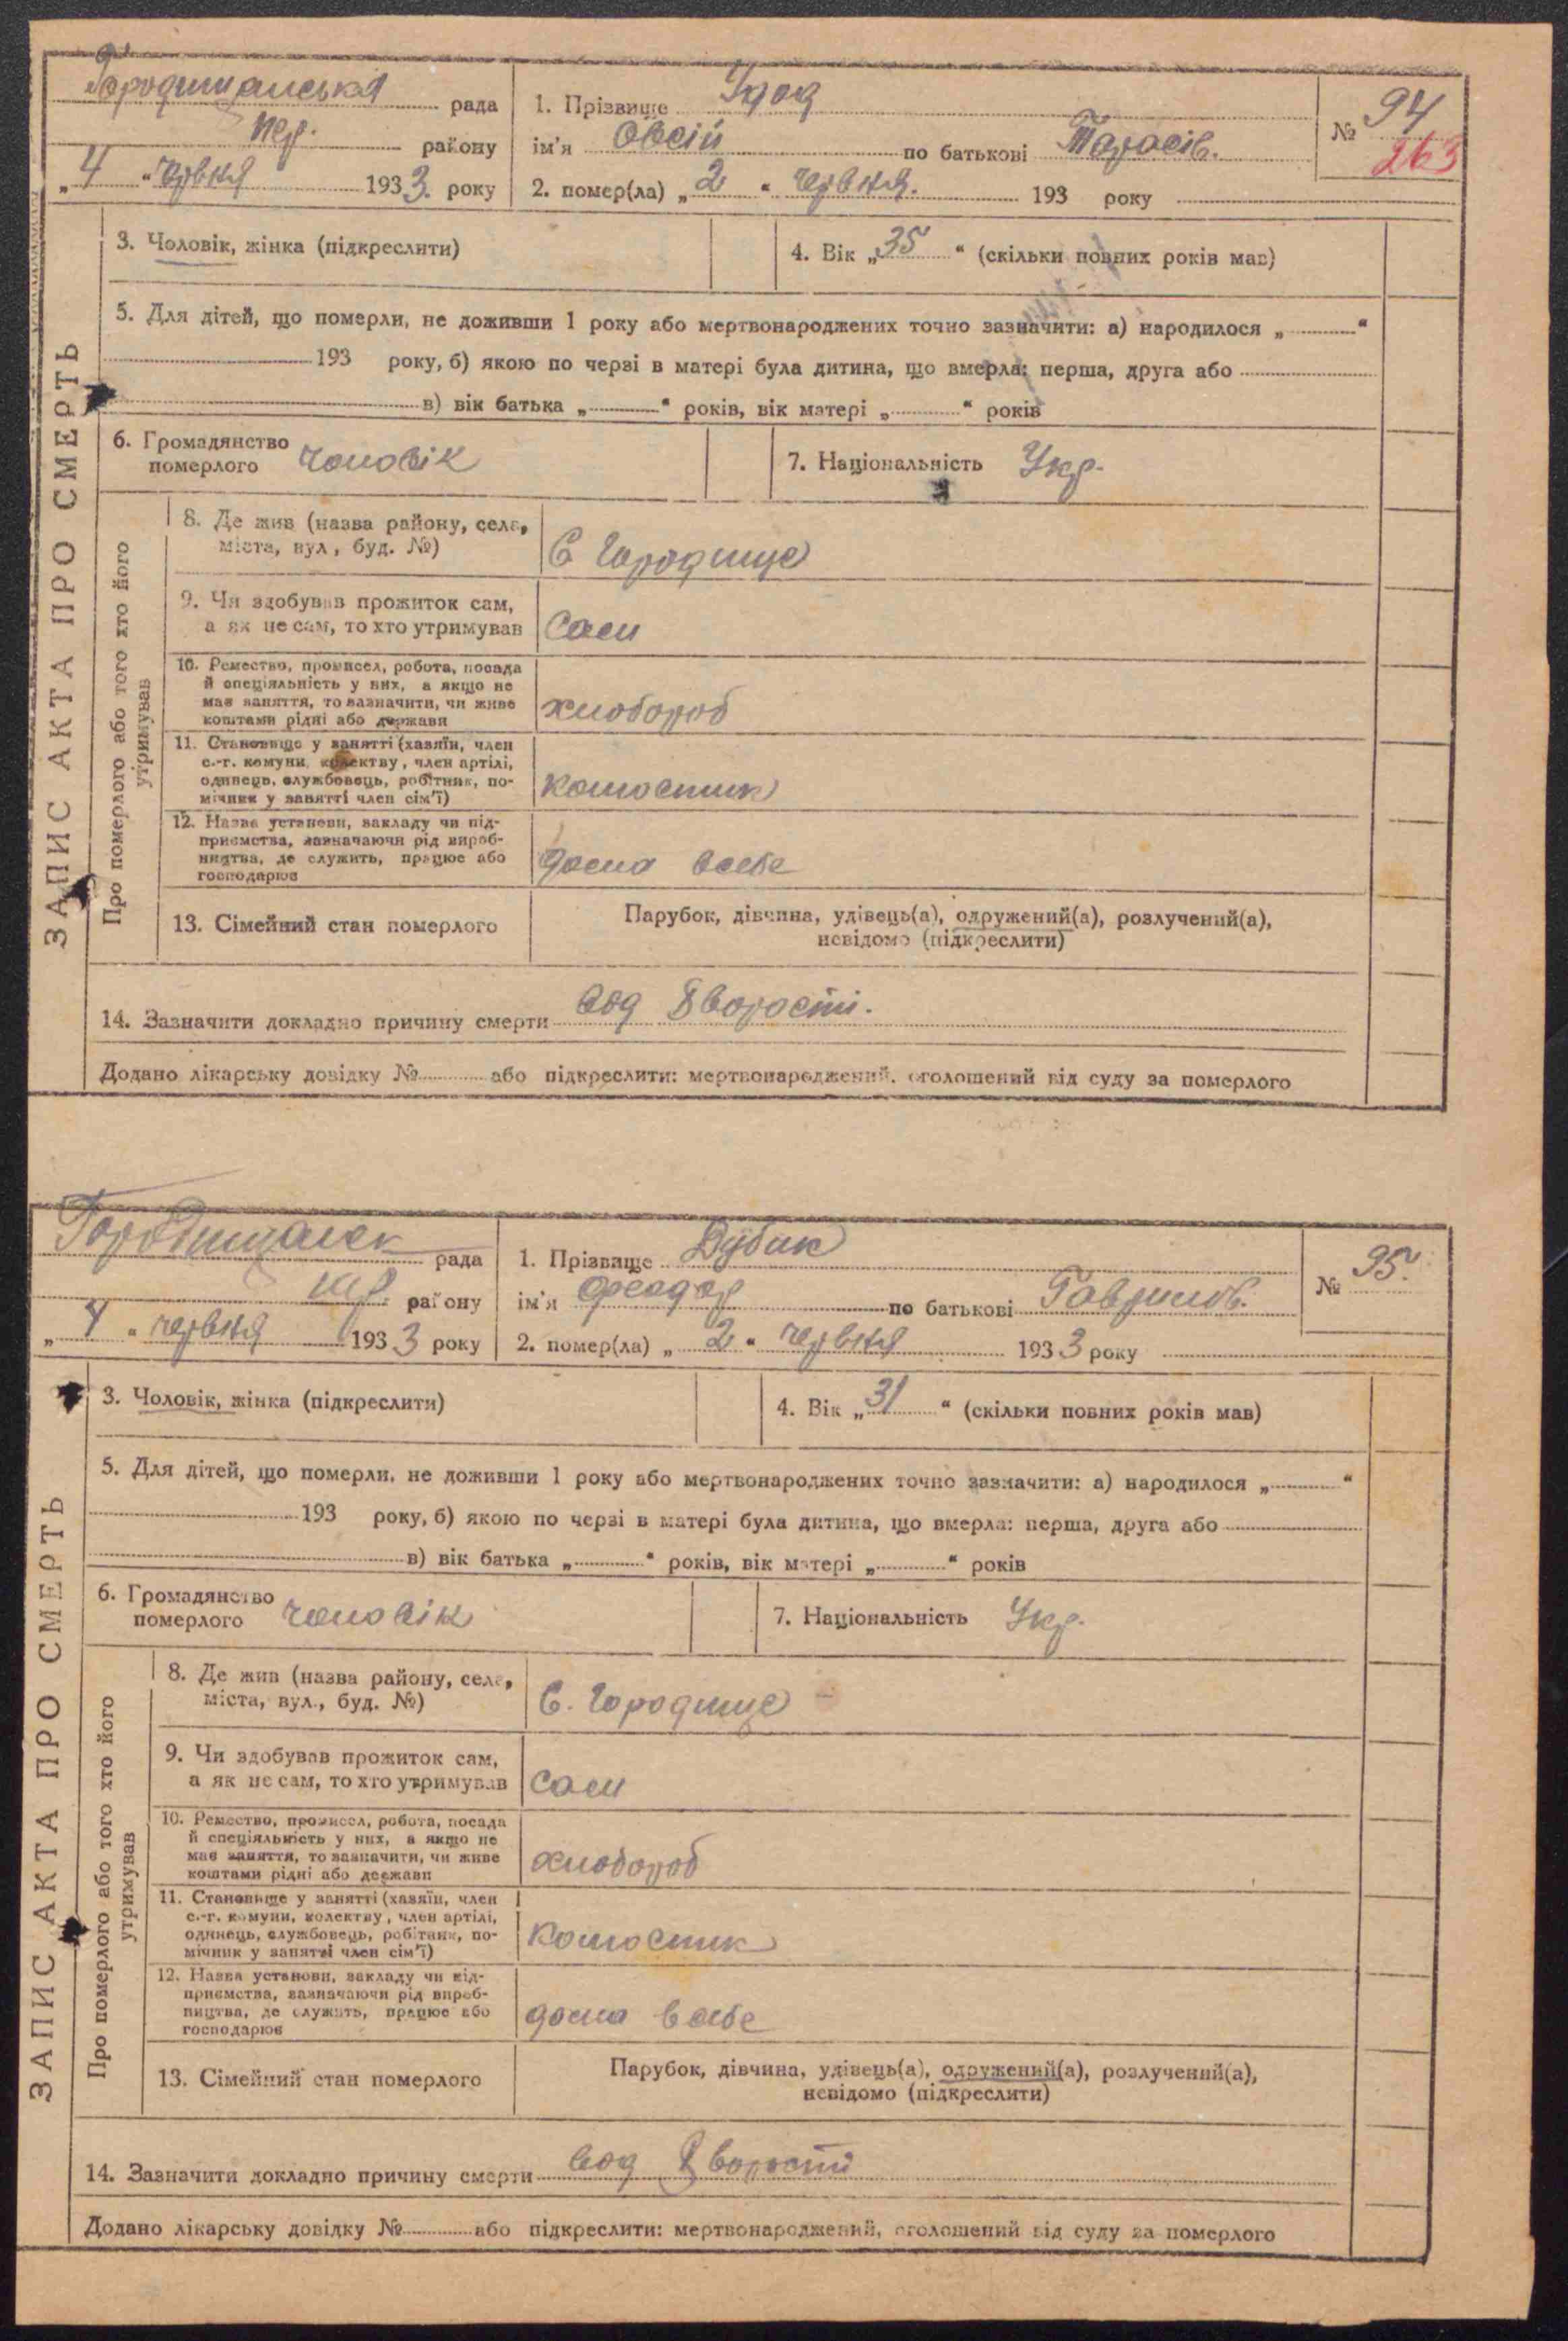 Городищанська рада
1. Прізвище Удод
№ 94
263
пер. району
ім'я Овсій по батькові Тарасів.
„4“ червня 1933. року
2. помер(ла) „2“ червня. 193 року
ЗАПИС АКТА ПРО СМЕРТЬ
3. Чоловік, жінка (підкреслити)
4. Вік „35“ (скільки повних років мав)
5. Для дітей, що померли, не доживши 1 року або мертвонароджених точно зазначити: а) народилося „ “
193 року, б) якою по черзі в матері була дитина, що вмерла: перша, друга або
в) вік батька „ “ років, вік матері „ “ років
6. Громадянство
померлого чоловік
7. Національність Укр.
Про померлого або того хто його
утримував
8. Де жив (назва району, села,
міста, вул, буд. №)
С Городище
9. Чи здобував прожиток сам,
а як не сам, то хто утримував
сам
10. Ремество, промисел, робота, посада
й спеціяльність у них, а якщо не
має заняття, то зазначити, чи живе
коштами рідні або держави
хлібороб
11. Становище у занятті (хазяїн, член
с.-г. комуни, колективу, член артілі,
одинець, службовець, робітник, по-
мічник у занятті член сім'ї)
колгоспник
12. Назва установи, закладу чи під-
приємства, зазначаючи рід вироб-
ництва, де служить, працює або
господарює
дома в себе
13. Сімейний стан померлого
Парубок, дівчина, удівець(а), одружений(а), розлучений(а),
невідомо (підкреслити)
14. Зазначити докладно причину смерти вод хворості.
Додано лікарську довідку № або підкреслити: мертвонароджений, оголошений від суду за померлого
Городищанск рада
1. Прізвище Дубик
№ 95.
пер. району
ім'я Феодор по батькові Гаврилов.
„4“ червня 1933 року
2. помер(ла) „2“ червня 1933 року
ЗАПИС АКТА ПРО СМЕРТЬ
3. Чоловік, жінка (підкреслити)
4. Вік „31“ (скільки повних років мав)
5. Для дітей, що померли, не доживши 1 року або мертвонароджених точно зазначити: а) народилося „ “
193 року, б) якою по черзі в матері була дитина, що вмерла: перша, друга або
в) вік батька „ “ років, вік матері „ “ років
6. Громадянство
померлого чоловік
7. Національність Укр.
Про померлого або того хто його
утримував
8. Де жив (назва району, села,
міста, вул., буд. №)
С. Городище
9. Чи здобував прожиток сам,
а як не сам, то хто утримував
сам
10. Ремество, промисел, робота, посада
й спеціяльність у них, а якщо не
має заняття, то зазначити, чи живе
коштами рідні або держави
хлібороб
11. Становище у занятті (хазяїн, член
с.-г. комуни, колективу, член артілі,
одинець, службовець, робітник, по-
мічник у занятті член сім'ї)
колгоспник
12. Назва установи, закладу чи під-
приємства, зазначаючи рід вироб-
ництва, де служить, працює або
господарює
дома в себе
13. Сімейний стан померлого
Парубок, дівчина, удівець(а), одружений(а), розлучений(а),
невідомо (підкреслити)
14. Зазначити докладно причину смерти вод хворости
Додано лікарську довідку № або підкреслити: мертвонароджений, оголошений від суду за померлого